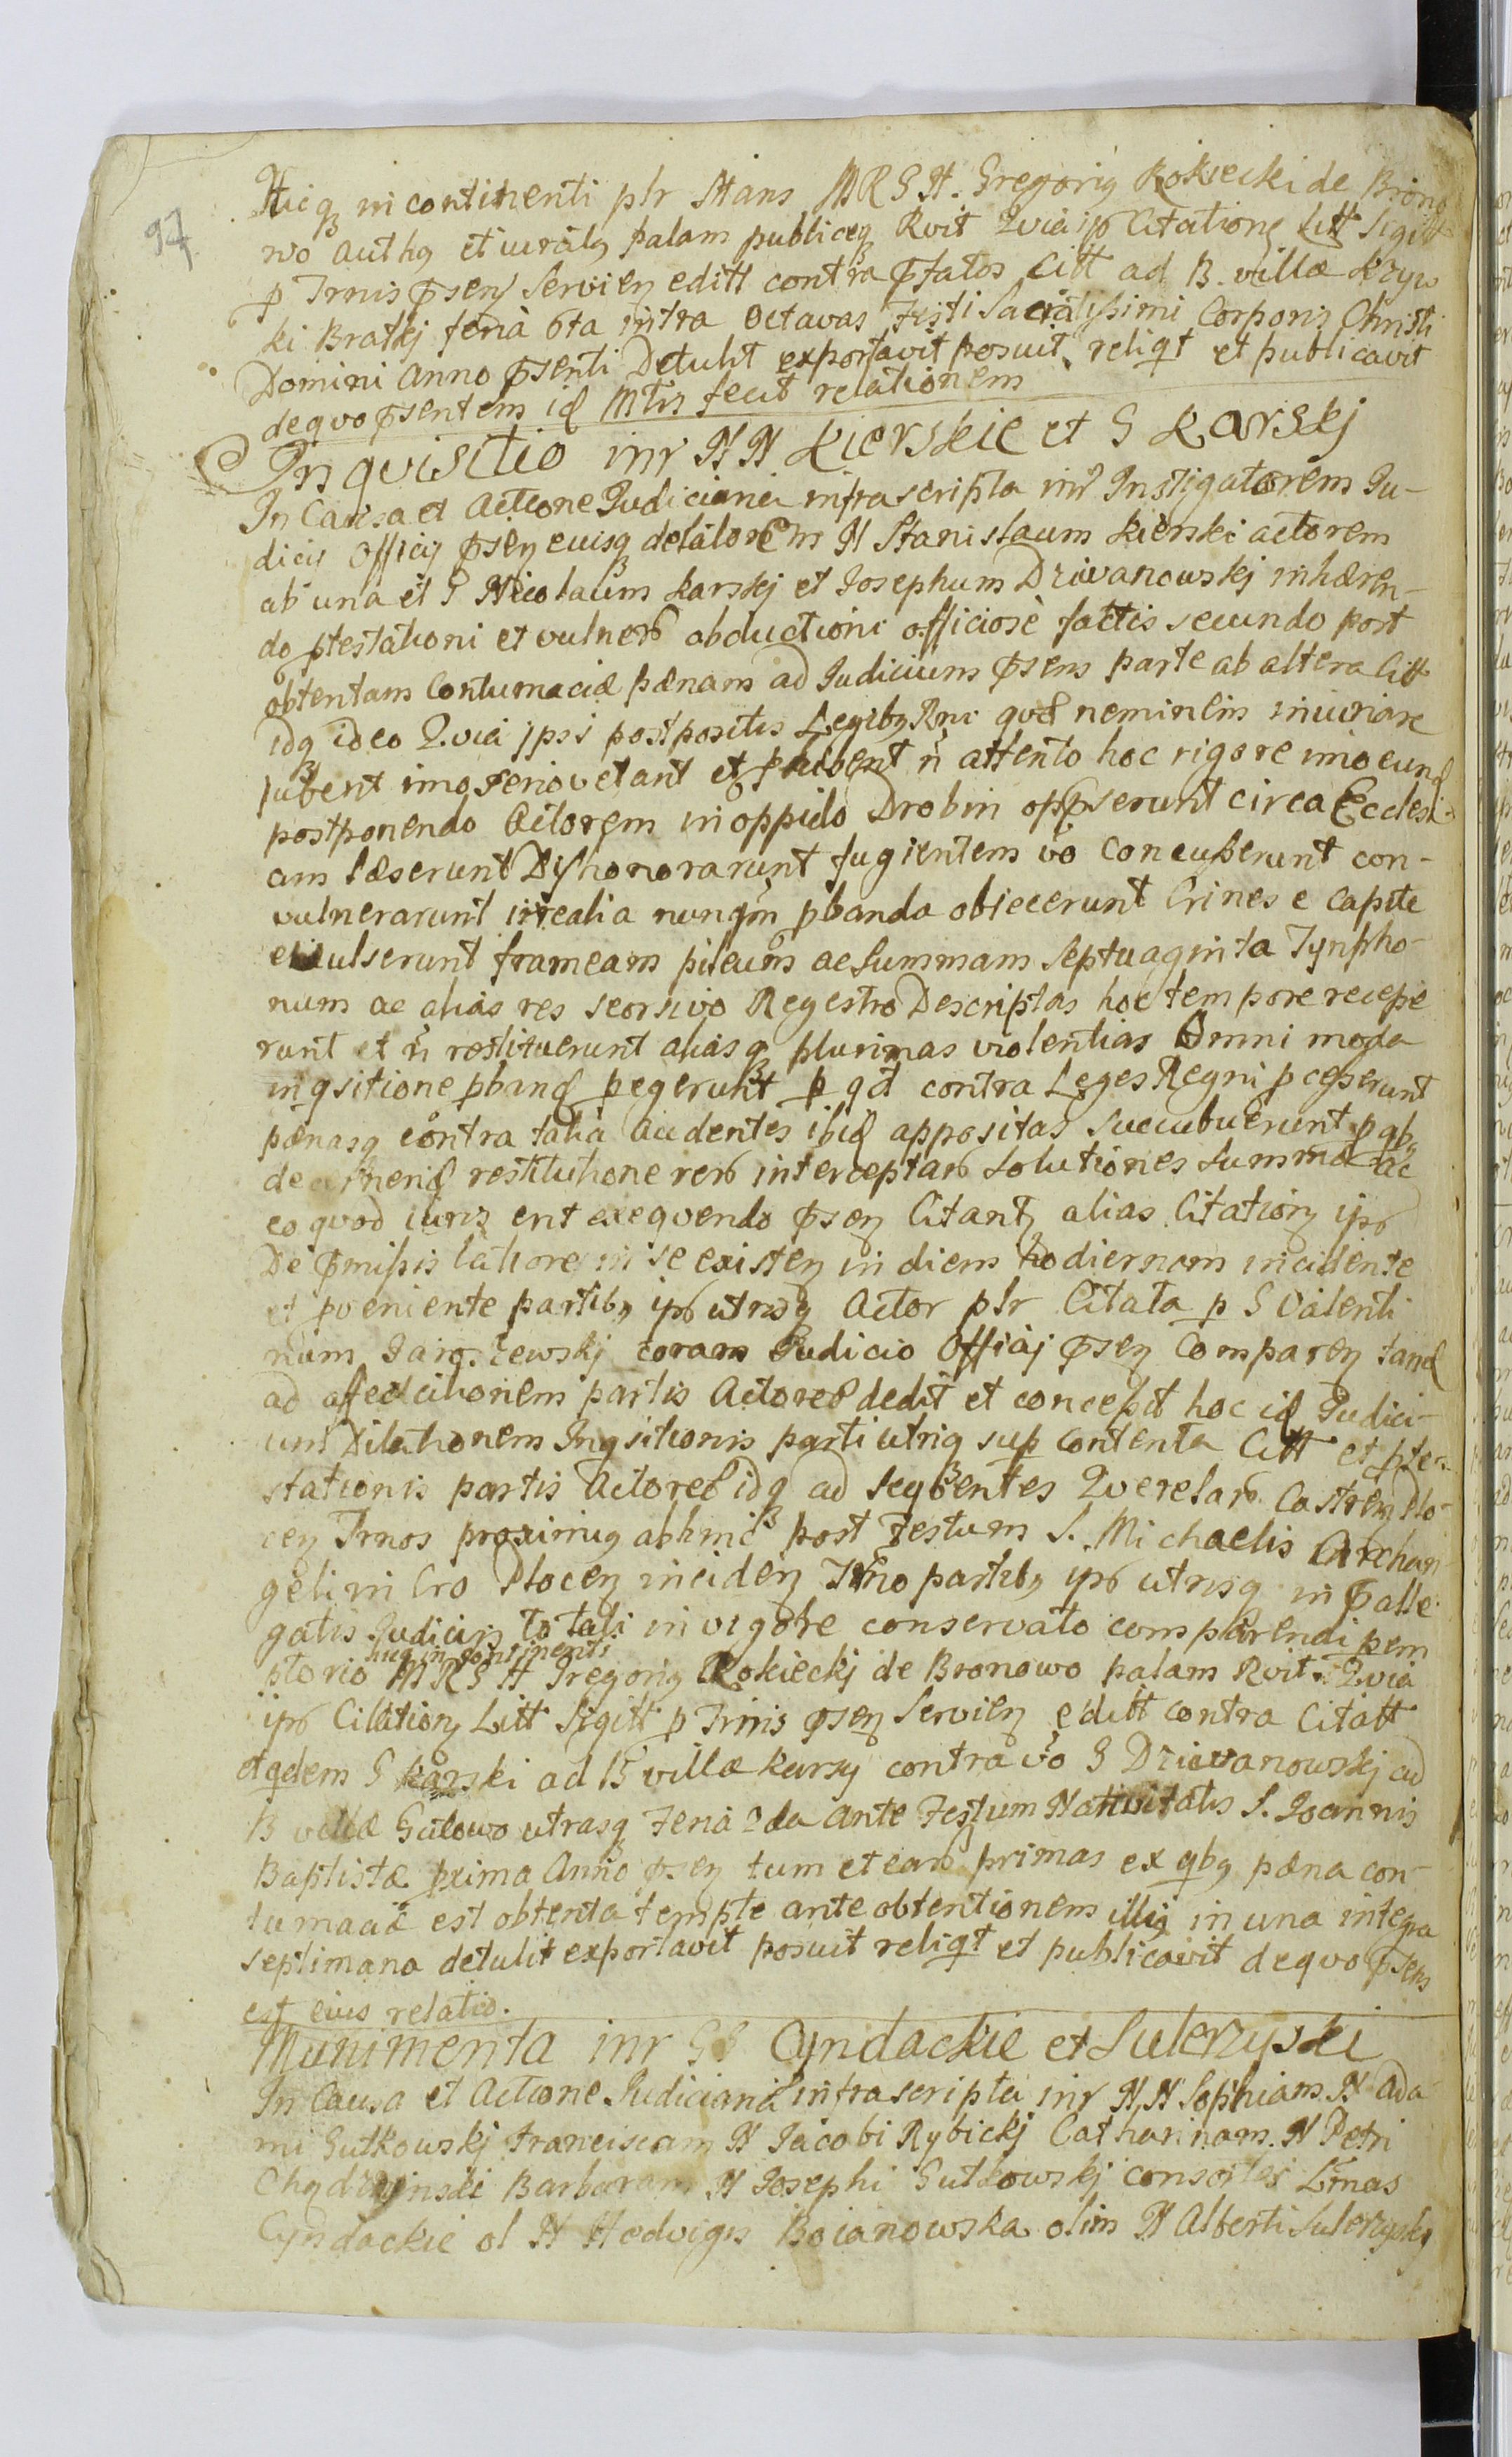 97
Hicq in continenti plr Stans MRS H. Gregorig Rokiecki de Brono
wo authq et iuratq palam publiceq Rvit Quia ip Citationeq Litt Sigitt
p Trnis psenq Servienq editt contra pfatos Citt ad B. villæ Krzyw
ki Bratkj feria 6ta intra Octavas Festi Sacratissimi Corporis Christi
Domini Anno psenti Detulit exportavit posuit reliqt et publicavit
dequo psentem id Mtrs fecit relationem
Inquisitio inr NN Kierskie et G Karskj
In Causa et Actione Judiciaria infrascripta inr Instigatorem Ju-
dicis Officij psenq euisq delatorem N Stanislaum Kierski actorem
ab una et G Nicolaum Karskj et Josephum Dziwanowskj inhæren-
do ptestationi et vulnerum obductioni officiosè factis secundo post
obtentam Contumaciæ pænam ad Judicium psens parte ab altera Citt
idq ideo Quia ipsi postpositis Legibq Rni qvod neminem iniuriare
jubent imo serio vetant et phibent ñ attento hoc rigore imo eund
postponendo Actorem in oppido Drobin oppserunt circa Ecclesi-
am læserunt Dyshonorarunt fugientem vo Concusserunt con-
vulnerarunt irrealia nunqm pbanda obiecerunt Crines e capite
evulserunt frameam pileum ac Summam Septuaginta Tynpho-
num ac alias res seorsivo Regestro Descriptas hoc tempore recepe
runt et ñ restituerunt aliasq plurimas violentias Omni moda
inqsitione pband pegerunt p qd contra Leges Regni pcesserunt
pænasq contra talia audentes ibid appositas Succubuerunt p qbq
decernend restitutione rerum interceptarum Solutiones Summæ ac
eo quod iuris erit exequendo psenq Citantq alias Citationq ip
De pmissis latiore in se existenq in diem hodiernam incidente
et pveniente partibq ip utrisq Actor plr Citata p G Valenti
num Jaroszewskj coram Judicio Officij psenq Comparenq tand
ad affectationem partis Actoreæ dedit et concessit hoc id Judici-
um Dilationem Inqsitionis parti utriq sup contenta Citt et pte-
stationis partis Actoreæ idq ad seqventes Querelarum Castrenq Plo-
cenq Trnos proximq abhinc post Festum S. Michaelis Archan
geli in Cro Plocenq incidenq Trno partibq ip utrisq in palle
gatis Judicijs totali in vigore conservato comparendi pem
ptorio hicq in continenti MRS H Gregorig Rokieckj de Bronowo palam Rvit Quia
ip Citationq Litt Sigitt p Trnis psenq Servienq editt contra Citatt
et qdem G Karski ad B villæ Karsy contra vo G Dziewanowskj ad
B villæ Gulowo utrasq Feria 2da ante Festum Nativitatis S. Joannis
Baptistæ pxima Anno psenq tum et earum primas ex qbq pæna con-
tumaciæ est obtenta tempte ante obtentionem illiq in una integra
septimana detulit exportavit posuit reliqt et publicavit dequo psens
est eius relatio.
Munimenta inr GG Cyndackie et Sulerzyski
In Causa et Actione Judiciaria infrascripta inr N,N Sophiam N Ada
mi Gutkowskj Franciscam N Jacobi Rybickj Catharinam N Petri
Chądzynski Barbaram N Josephi Gutkowskj consortes Lrmas
Cyndackie ol N Hedvigis Boianowska olim N Alberti Sulerzyskj